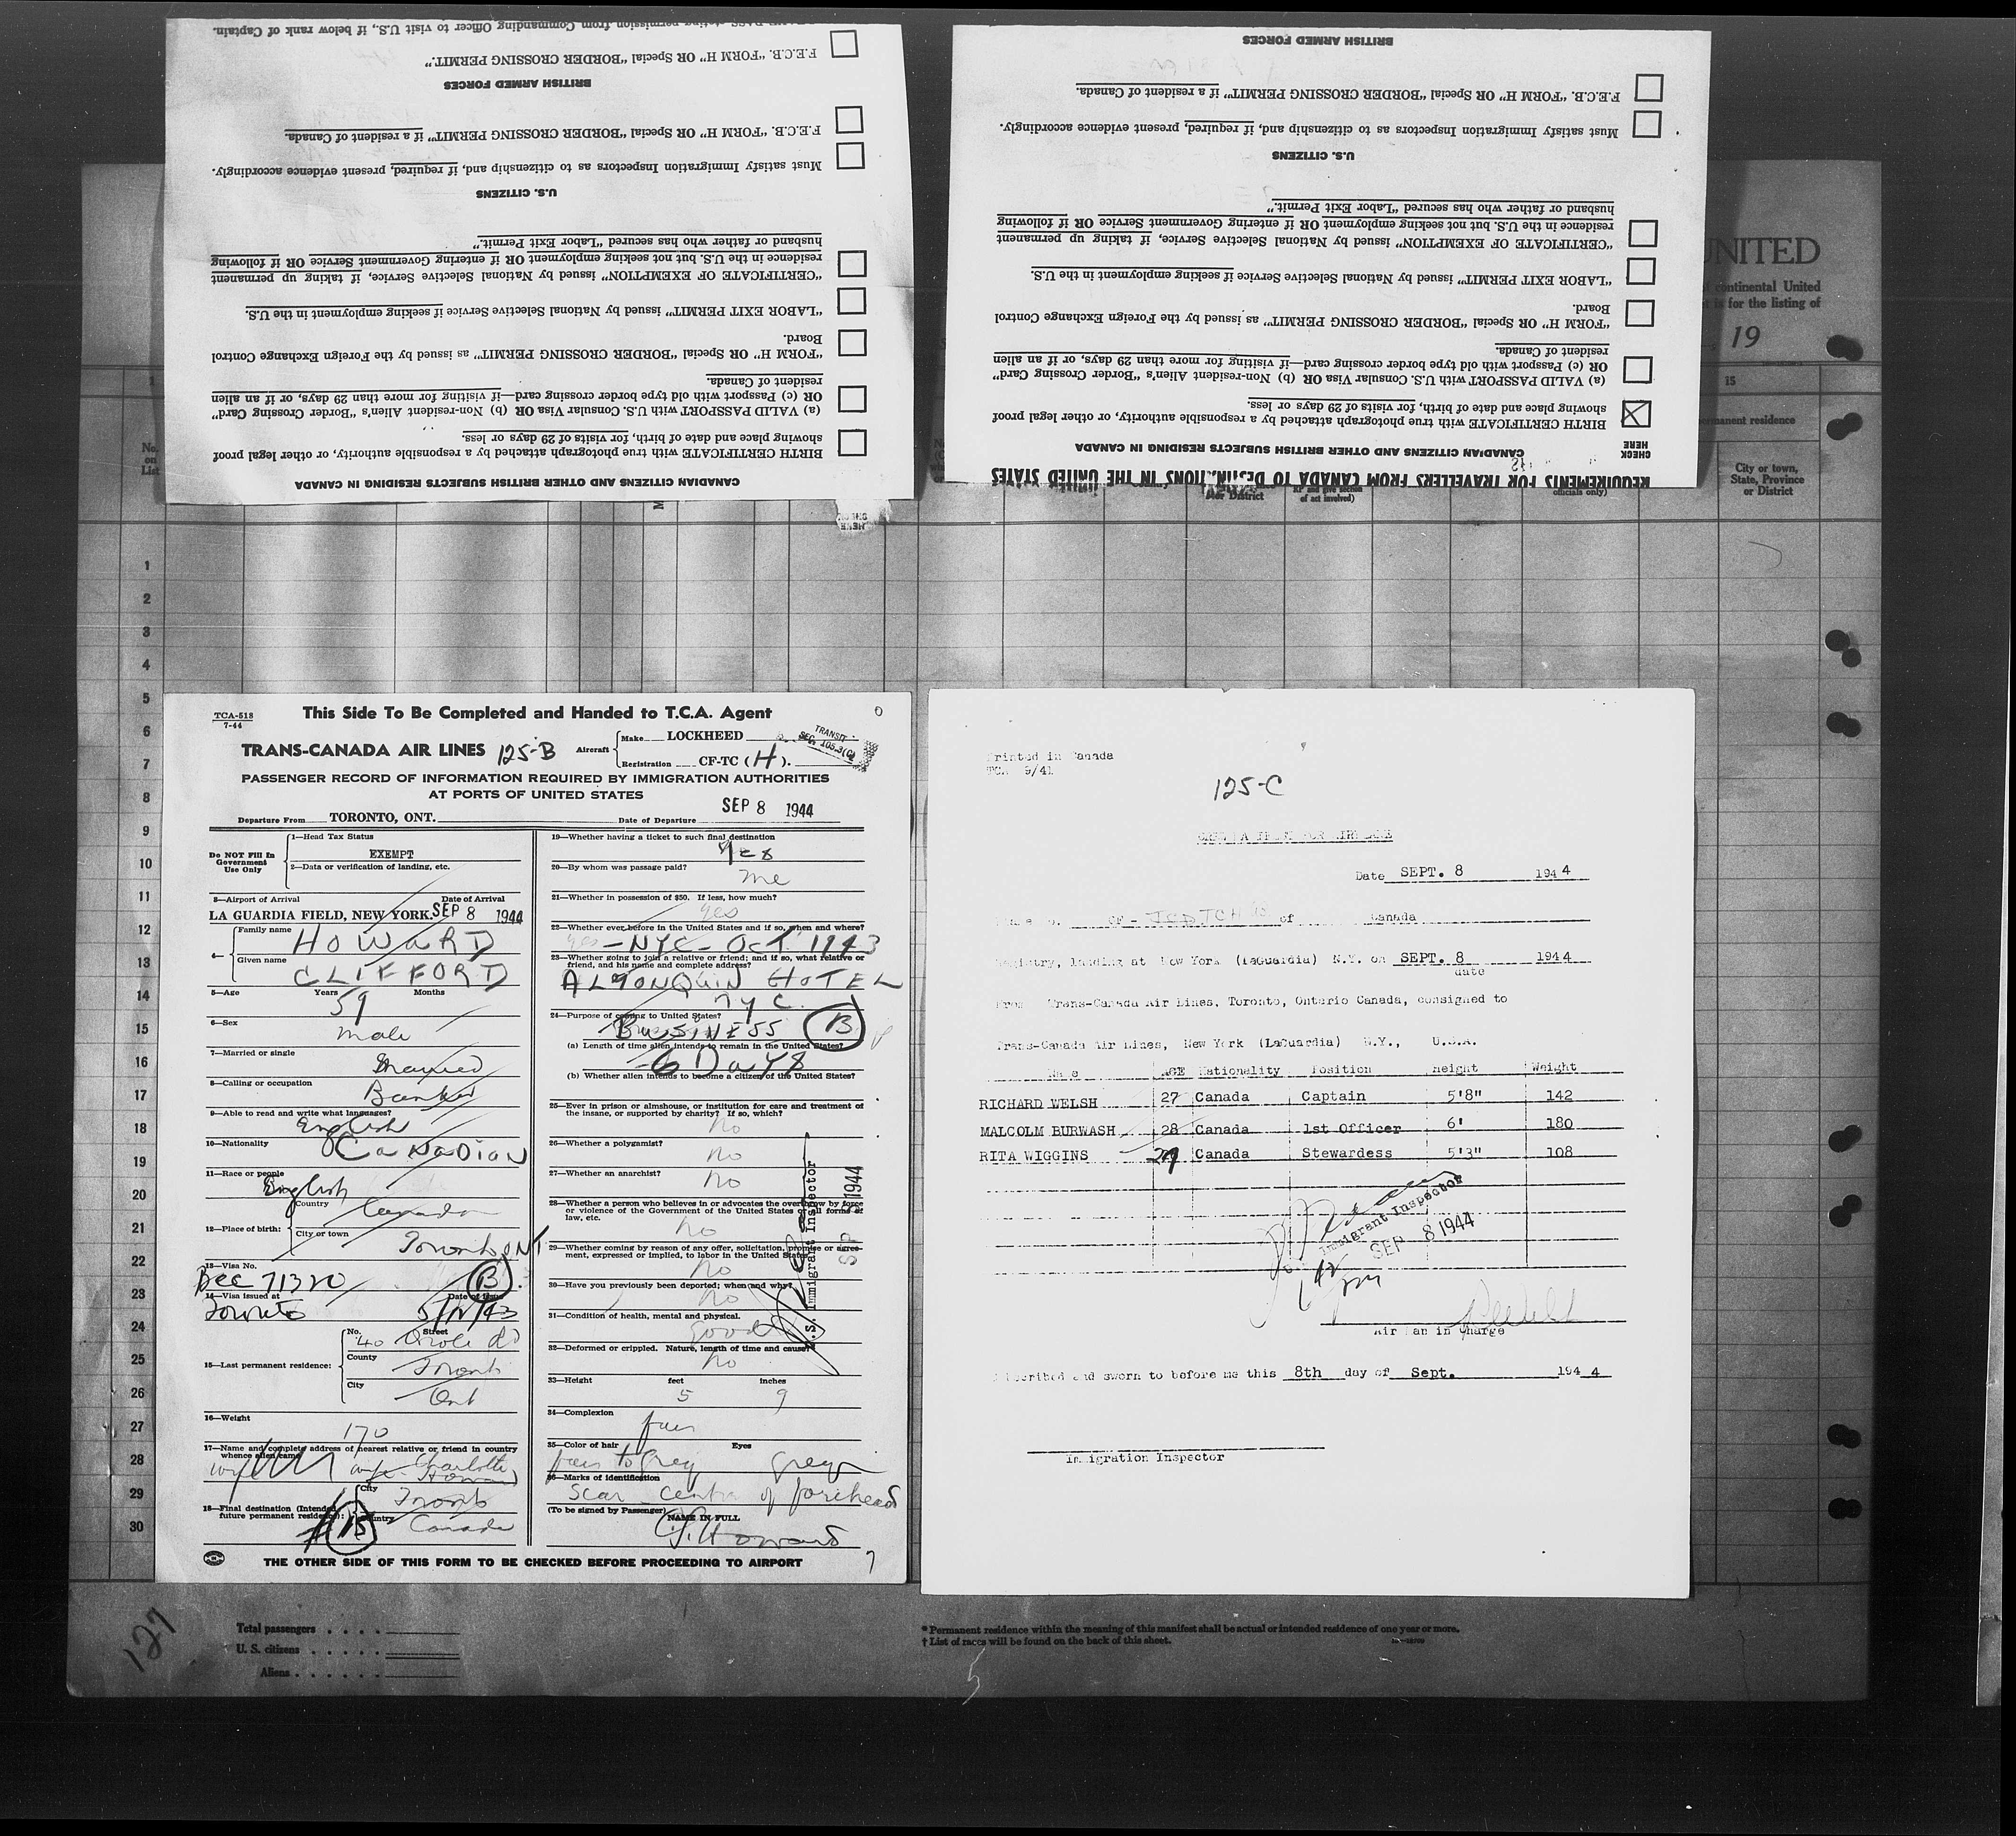 mission from Commanding Officer to visit U.S., if below rank of Captain.
F.E.C.B. "FORM H" OR Special "BORDER CROSSING PERMIT."
BRITISH ARMED FORCES
F.E.C.B. "FORM H" OR Special "BORDER CROSSING PERMIT" if a resident of Canada.
Must satisfy Immigration Inspectors as to citizenship and, if required, present evidence accordingly.
U.S. CITIZENS
husband or father who has secured "Labor Exit Permit."
residence in the U.S. but not seeking employment OR if entering Government Service OR if following
"CERTIFICATE OF EXEMPTION" issued by National Selective Service, if taking up permanent
"LABOR EXIT PERMIT" issued by National Selective Service if seeking employment in the U.S.
Board.
"FORM H" OR Special "BORDER CROSSING PERMIT" as issued by the Foreign Exchange Control
resident of Canada.
OR (c) Passport with old type border crossing card—if visiting for more than 29 days, or if an alien
(a) VALID PASSPORT with U.S. Consular Visa OR (b) Non-resident Alien's "Border Crossing Card"
showing place and date of birth, for visits of 29 days or less.
BIRTH CERTIFICATE with true photograph attached by a responsible authority, or other legal proof
CANADIAN CITIZENS AND OTHER BRITISH SUBJECTS RESIDING IN CANADA
CHECK
HERE
BRITISH ARMED FORCES
F.E.C.B. "FORM H" OR Special "BORDER CROSSING PERMIT" if a resident of Canada.
Must satisfy Immigration Inspectors as to citizenship and, if required, present evidence accordingly.
U.S. CITIZENS
husband or father who has secured "Labor Exit Permit."
residence in the U.S. but not seeking employment OR if entering Government Service OR if following
"CERTIFICATE OF EXEMPTION" issued by National Selective Service, if taking up permanent
"LABOR EXIT PERMIT" issued by National Selective Service if seeking employment in the U.S.
Board.
"FORM H" OR Special "BORDER CROSSING PERMIT" as issued by the Foreign Exchange Control
resident of Canada.
OR (c) Passport with old type border crossing card—if visiting for more than 29 days, or if an alien
(a) VALID PASSPORT with U.S. Consular Visa OR (b) Non-resident Alien's "Border Crossing Card"
showing place and date of birth, for visits of 29 days or less.
BIRTH CERTIFICATE with true photograph attached by a responsible authority, or other legal proof
CHECK
HERE
CANADIAN CITIZENS AND OTHER BRITISH SUBJECTS RESIDING IN CANADA
REQUIREMENTS FOR TRAVELLERS FROM CANADA TO DESTINATIONS IN THE UNITED STATES
UNITED
continental United
is for the listing of
, 19
15
permanent residence
City or town,
State, Province
or District
No.
on
List
or District
of act involved)
officials only)
1
2
3
4
5
6
7
8
9
10
11
12
13
14
15
16
17
18
19
20
21
22
23
24
25
26
27
28
29
30
TCA-518
7-44
This Side To Be Completed and Handed to T.C.A. Agent
TRANS-CANADA AIR LINES 125-B
Aircraft
Make LOCKHEED
Registration CF-TC (H).
TRANSIT
SEC. 105.3(C)
PASSENGER RECORD OF INFORMATION REQUIRED BY IMMIGRATION AUTHORITIES
AT PORTS OF UNITED STATES
Departure From TORONTO, ONT. Date of Departure SEP 8 1944
Do NOT Fill In
Government
Use Only
1—Head Tax Status
EXEMPT
2—Data or verification of landing, etc.
3—Airport of Arrival Date of Arrival
LA GUARDIA FIELD, NEW YORK. SEP 8 1944
4—
Family name HOWARD
Given name CLIFFORD
5—Age Years 59 Months
6—Sex Male
7—Married or single Married
8—Calling or occupation Banker
9—Able to read and write what languages?
English
10—Nationality CANADIAN
11—Race or people
English
12—Place of birth:
Country Canada
City or town
Toronto ONT
13—Visa No.
BCC 71320 B
14—Visa issued at Date of issue
Toronto 5/12/43
15—Last permanent residence:
No. 40 Street Oriole Rd
County Toronto
City Ont
16—Weight 170
17—Name and complete address of nearest relative or friend in country
whence alien came
wife wife Charlotte
Howard
18—Final destination (Intended
future permanent residence):
City Toronto
Country Canada
B
19—Whether having a ticket to such final destination
Yes
20—By whom was passage paid?
me
21—Whether in possession of $50. If less, how much?
yes
22—Whether ever before in the United States and if so, when and where?
yes - NYC - OCT 1943
23—Whether going to join a relative or friend; and if so, what relative or
friend, and his name and complete address?
ALGONQUIN HOTEL
NYC.
24—Purpose of coming to United States?
BUSINESS B
(a) Length of time alien intends to remain in the United States?
6 Days
(b) Whether alien intends to become a citizen of the United States?
25—Ever in prison or almshouse, or institution for care and treatment of
the insane, or supported by charity? If so, which?
no
26—Whether a polygamist?
no
27—Whether an anarchist?
no
28—Whether a person who believes in or advocates the overthrow by force
or violence of the Government of the United States or all forms of
law, etc.
no
29—Whether coming by reason of any offer, solicitation, promise or agree-
ment, expressed or implied, to labor in the United States
no
30—Have you previously been deported; when and why?
no
31—Condition of health, mental and physical.
good
32—Deformed or crippled. Nature, length of time and cause?
no
33—Height feet inches
5 9
34—Complexion
fair
35—Color of hair Eyes
fair to Grey grey
36—Marks of identification
Scar centre of forehead
(To be signed by Passenger) NAME IN FULL
C. Howard
U.S. Immigrant Inspector
SEP 8 1944
THE OTHER SIDE OF THIS FORM TO BE CHECKED BEFORE PROCEEDING TO AIRPORT
7
Printed in Canada
TCA 9/41
125-C
Date SEPT. 8 1944
CF - TCH of Canada
Registry, landing at New York (LaGuardia) N.Y. on SEPT. 8 1944
date
From Trans-Canada Air Lines, Toronto, Ontario Canada, consigned to
Trans-Canada Air Lines, New York (LaGuardia) N.Y., U.S.A.
Name AGE Nationality Position Height Weight
RICHARD WELSH 27 Canada Captain 5'8" 142
MALCOLM BURWASH 28 Canada 1st Officer 6' 180
RITA WIGGINS 29 Canada Stewardess 5'3" 108
Immigrant Inspector
SEP 8 1944
Air Man in Charge
Subscribed and sworn to before me this 8th day of Sept. 1944
Immigration Inspector
127
Total passengers . . . .
U. S. citizens . . . . .
Aliens . . . . . .
* Permanent residence within the meaning of this manifest shall be actual or intended residence of one year or more.
† List of races will be found on the back of this sheet.
5